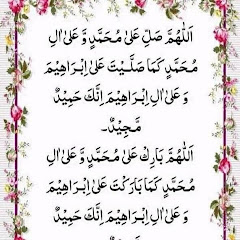 اَللّٰهُمَّ صَلِّ عَلٰى مُحَمَّدٍ وَّ عَلٰٓى اٰلِ
مُحَمَّدٍ كَمَا صَلَّيْتَ عَلٰٓى اِبْرَاهِيْمَ
وَ عَلٰٓى اٰلِ اِبْرَاهِيْمَ اِنَّكَ حَمِيْدٌ
مَّجِيْدٌ۔
اَللّٰهُمَّ بَارِكْ عَلٰى مُحَمَّدٍ وَّ عَلٰٓى اٰلِ
مُحَمَّدٍ كَمَا بَارَكْتَ عَلٰٓى اِبْرَاهِيْمَ
وَ عَلٰٓى اٰلِ اِبْرَاهِيْمَ اِنَّكَ حَمِيْدٌ